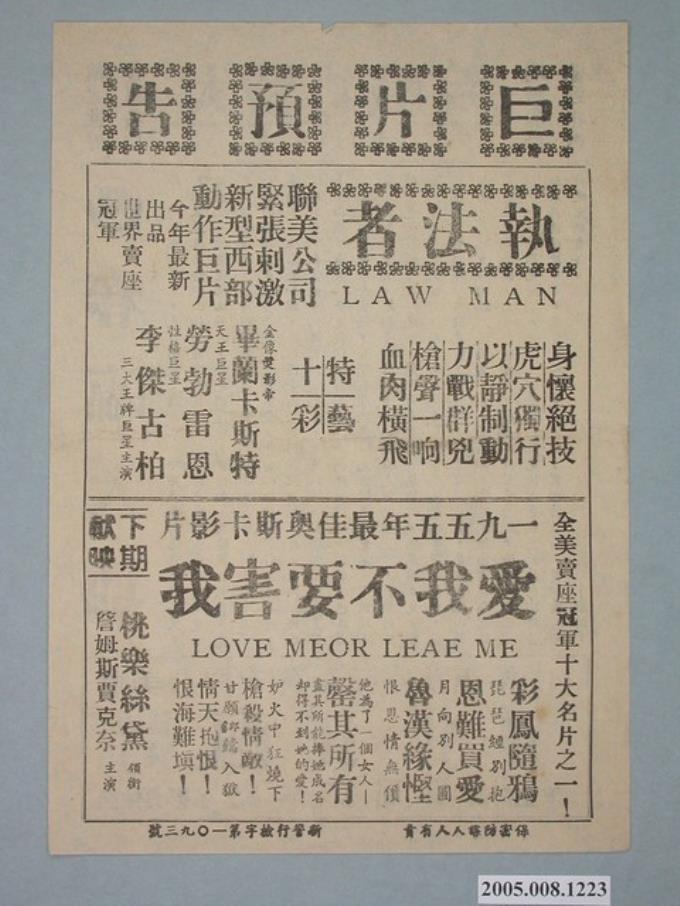 巨片預告
執法者
LAW MAN
聯美公司
緊張刺激
新型西部
動作巨片
今年最新
出品
世界賣座
冠軍
身懷絕技
虎穴獨行
以靜制動
力戰群兇
槍聲一响
血肉橫飛
特藝
十彩
金像雙影帝
畢蘭卡斯特
天王巨星
勞勃雷恩
性格巨星
李傑古柏
三大王牌巨星主演
全美賣座冠軍十大名片之一！
一九五五年最佳奧斯卡影片
愛我不要害我
LOVE MEOR LEAE ME
彩鳳隨鴉
琵琶經別抱
恩難買愛
月向別人圓
魯漢緣慳
恨恩情無價
他為了一個女人—
罄其所有
盡其所能捧她成名
却得不到她的愛！
妒火中狂燒下
槍殺情敵！
甘願入獄
情天抱恨！
恨海難填！
下期
獻映
桃樂絲黛 領銜
詹姆斯賈克奈 主演
保密防諜人人有責
新警行檢字第一〇九三號
2005.008.1223